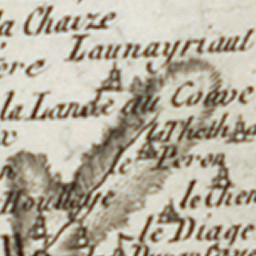 la Chaize
Launayriaut
ere
la Lande au Couve
x
le Theth
le Peron
n
Houllaye
le Chen
le Diage